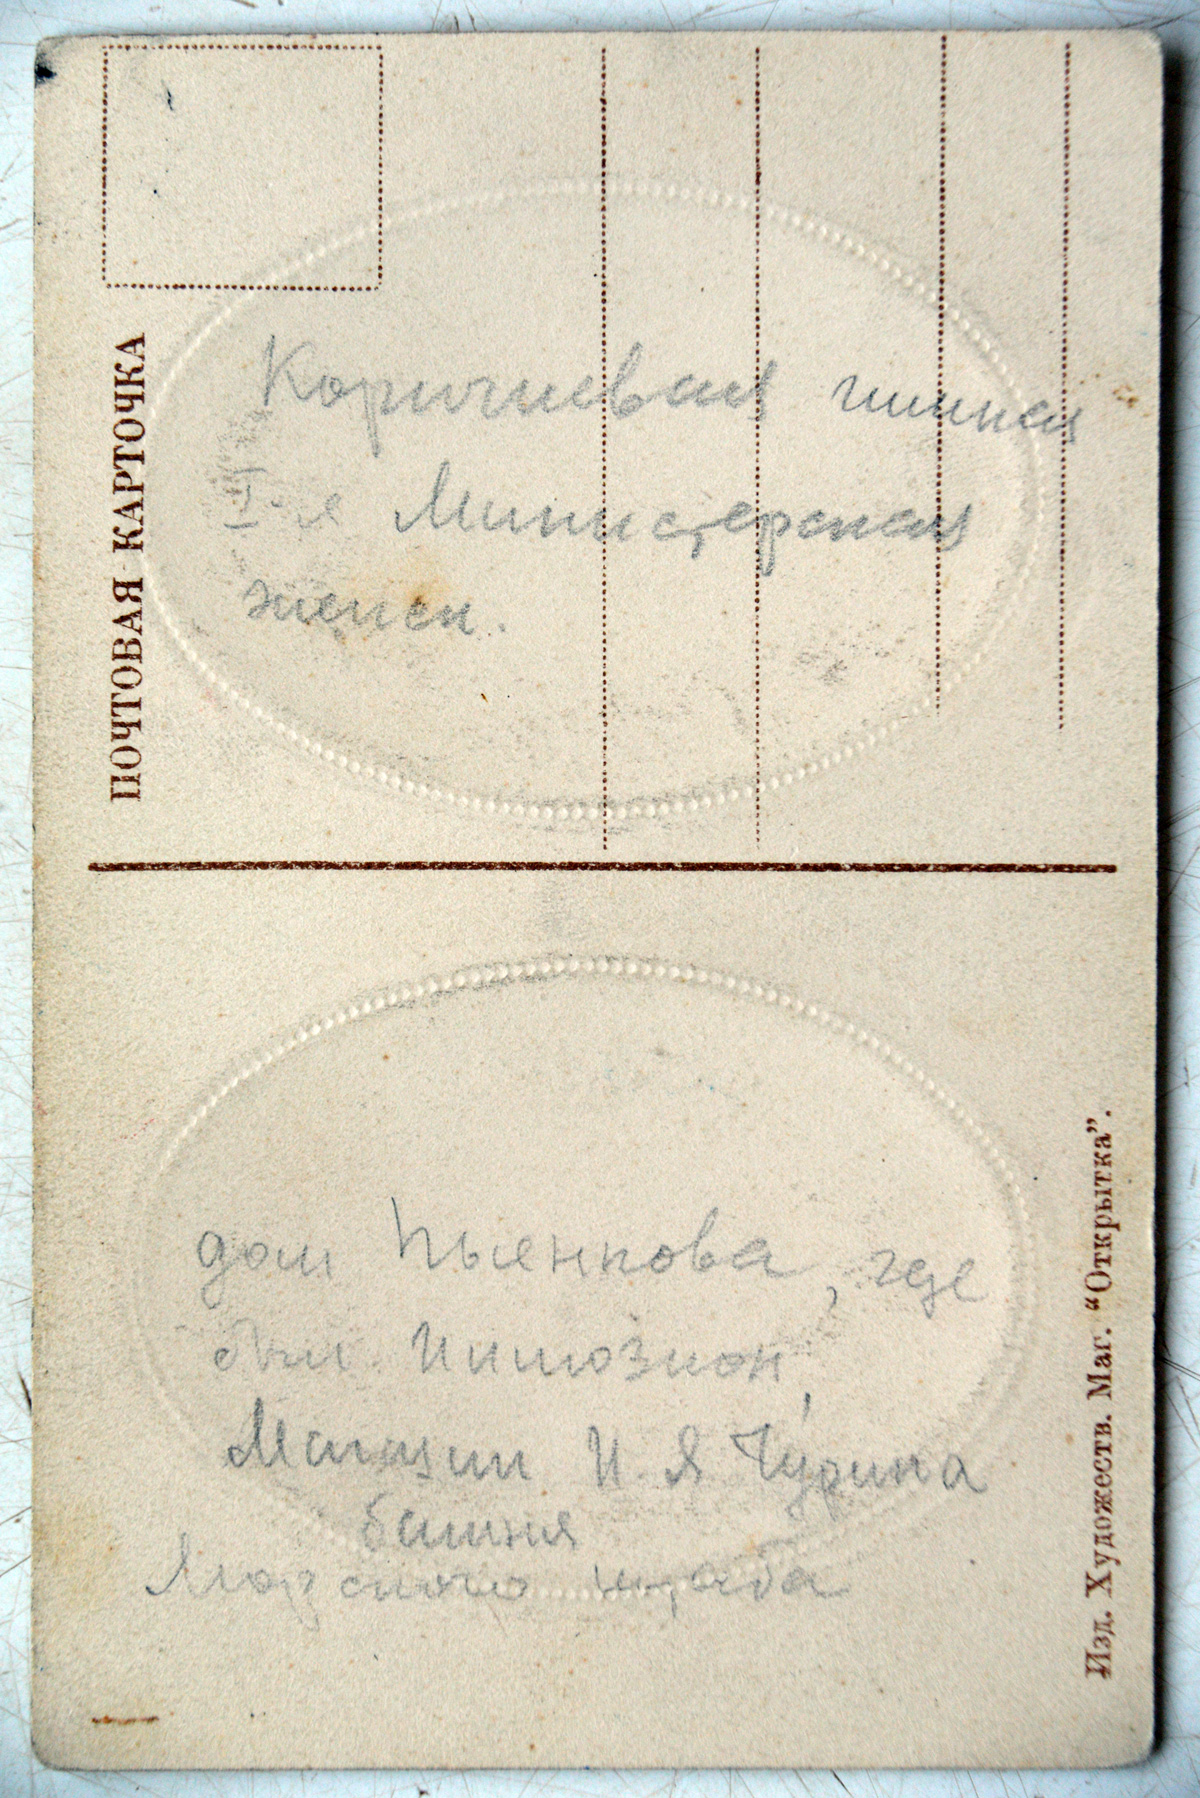 ПОЧТОВАЯ КАРТОЧКА
Коричневая гимназ
I-я Министерская
женск.
дом Пьянкова, где
был Иллюзион,
Магазин И Я Чурина
башня
Морского штаба
Изд. Художеств. Маг. “Открытка”.